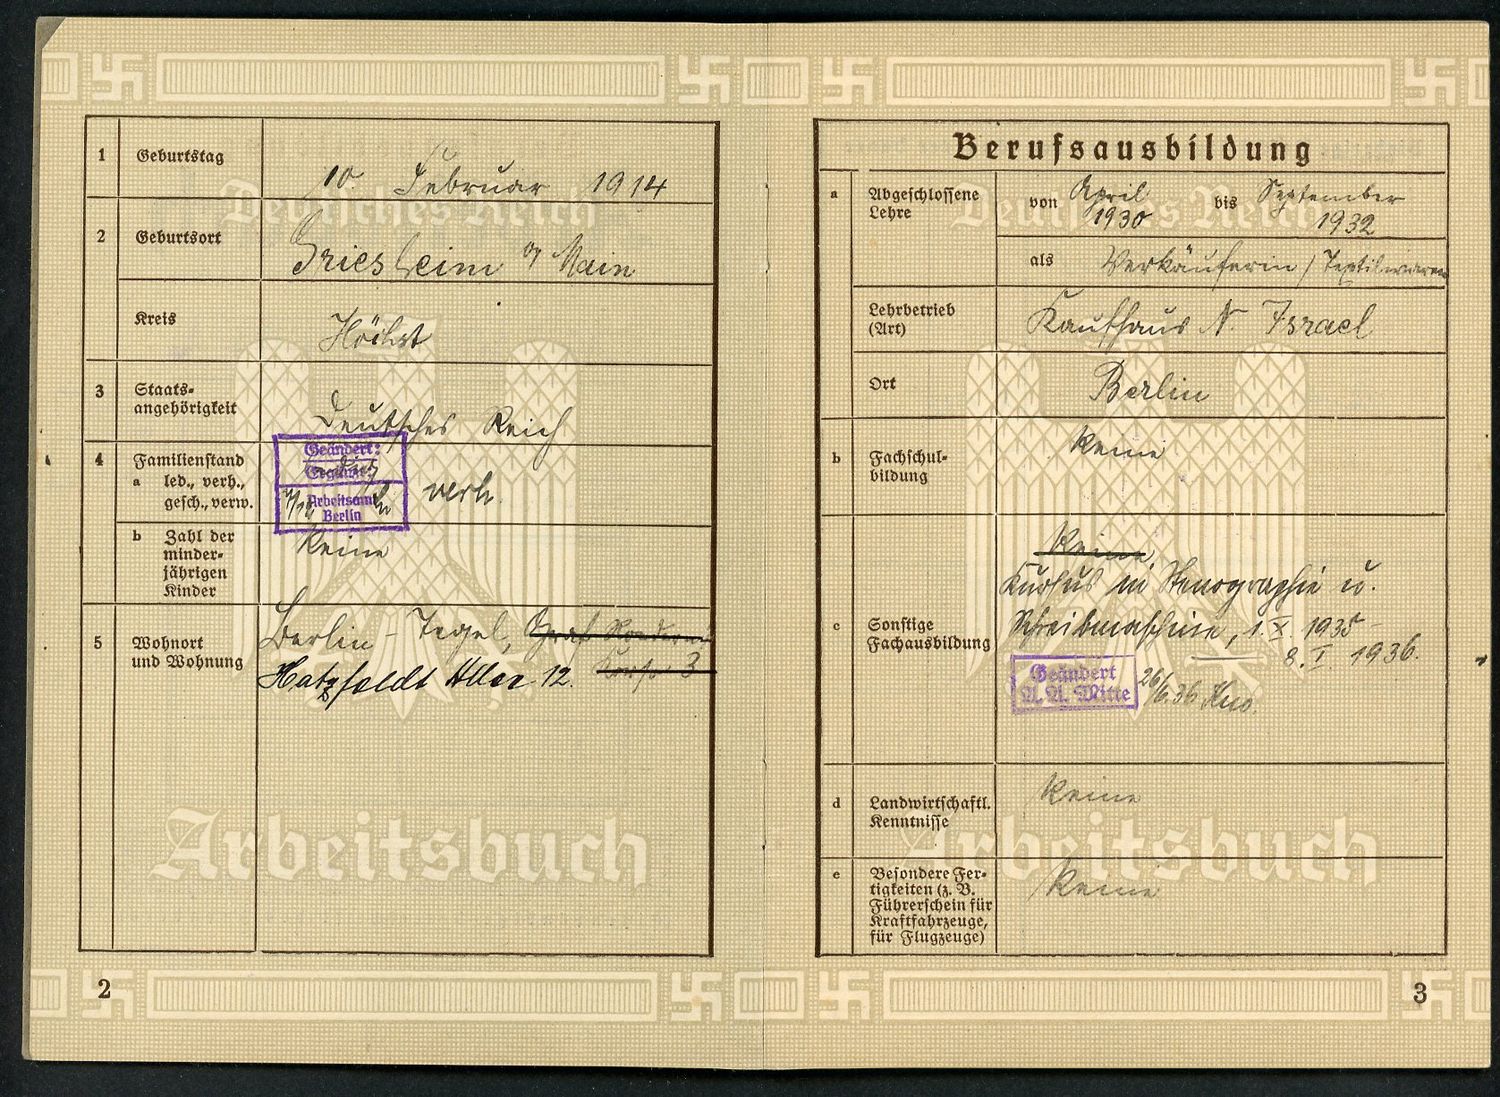 1 Geburtstag 10. Februar 1914
2 Geburtsort Griesheim a/ Main
Kreis Höchst
3 Staats-
angehörigkeit Deutsches Reich
4 Familienstand
a led., verh.,
gesch., verw.
Geändert:
Arbeitsamt
Berlin
verh.
b Zahl der
minder-
jährigen
Kinder
Keine
5 Wohnort
und Wohnung
Berlin - Tegel, Graf
Hatzfeldt Allee 12. 3
Deutsches Reich
Arbeitsbuch
2
Berufsausbildung
a Abgeschlossene
Lehre
von April
1930
bis September
1932
als Verkäuferin / Textilwaren
Lehrbetrieb
(Art)
Kaufhaus N. Israel
Ort Berlin
b Fachschul-
bildung
Keine
c Sonstige
Fachausbildung
Keine
Kursus in Stenographie u.
Schreibmaschine, 1. X. 1935 -
8. I. 1936.
Geändert
A. A. Mitte
26/6.36
d Landwirtschaftl.
Kenntnisse
Keine
e Besondere Fer-
tigkeiten (z. B.
Führerschein für
Kraftfahrzeuge,
für Flugzeuge)
Keine
Deutsches Reich
Arbeitsbuch
3